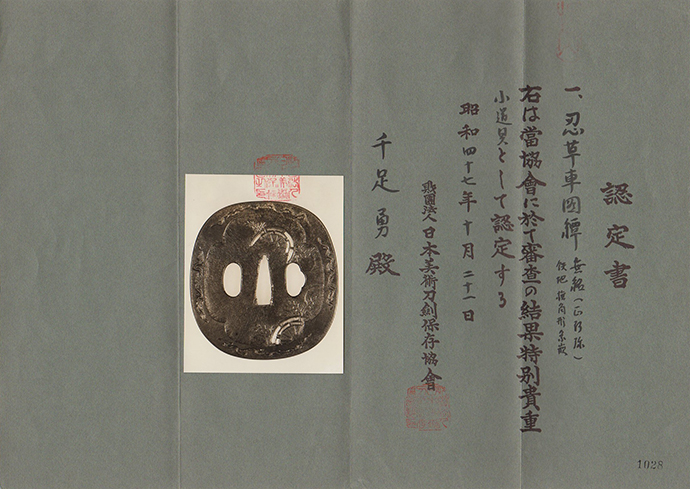 認定書
一、忍草車図鐔 無銘（正阿弥）
鉄地 撫角形
右は當協會に於て審査の結果特別貴重
小道具として認定する
昭和四十七年十月二十一日
財團法人日本美術刀劍保存協會
千足勇殿
1028